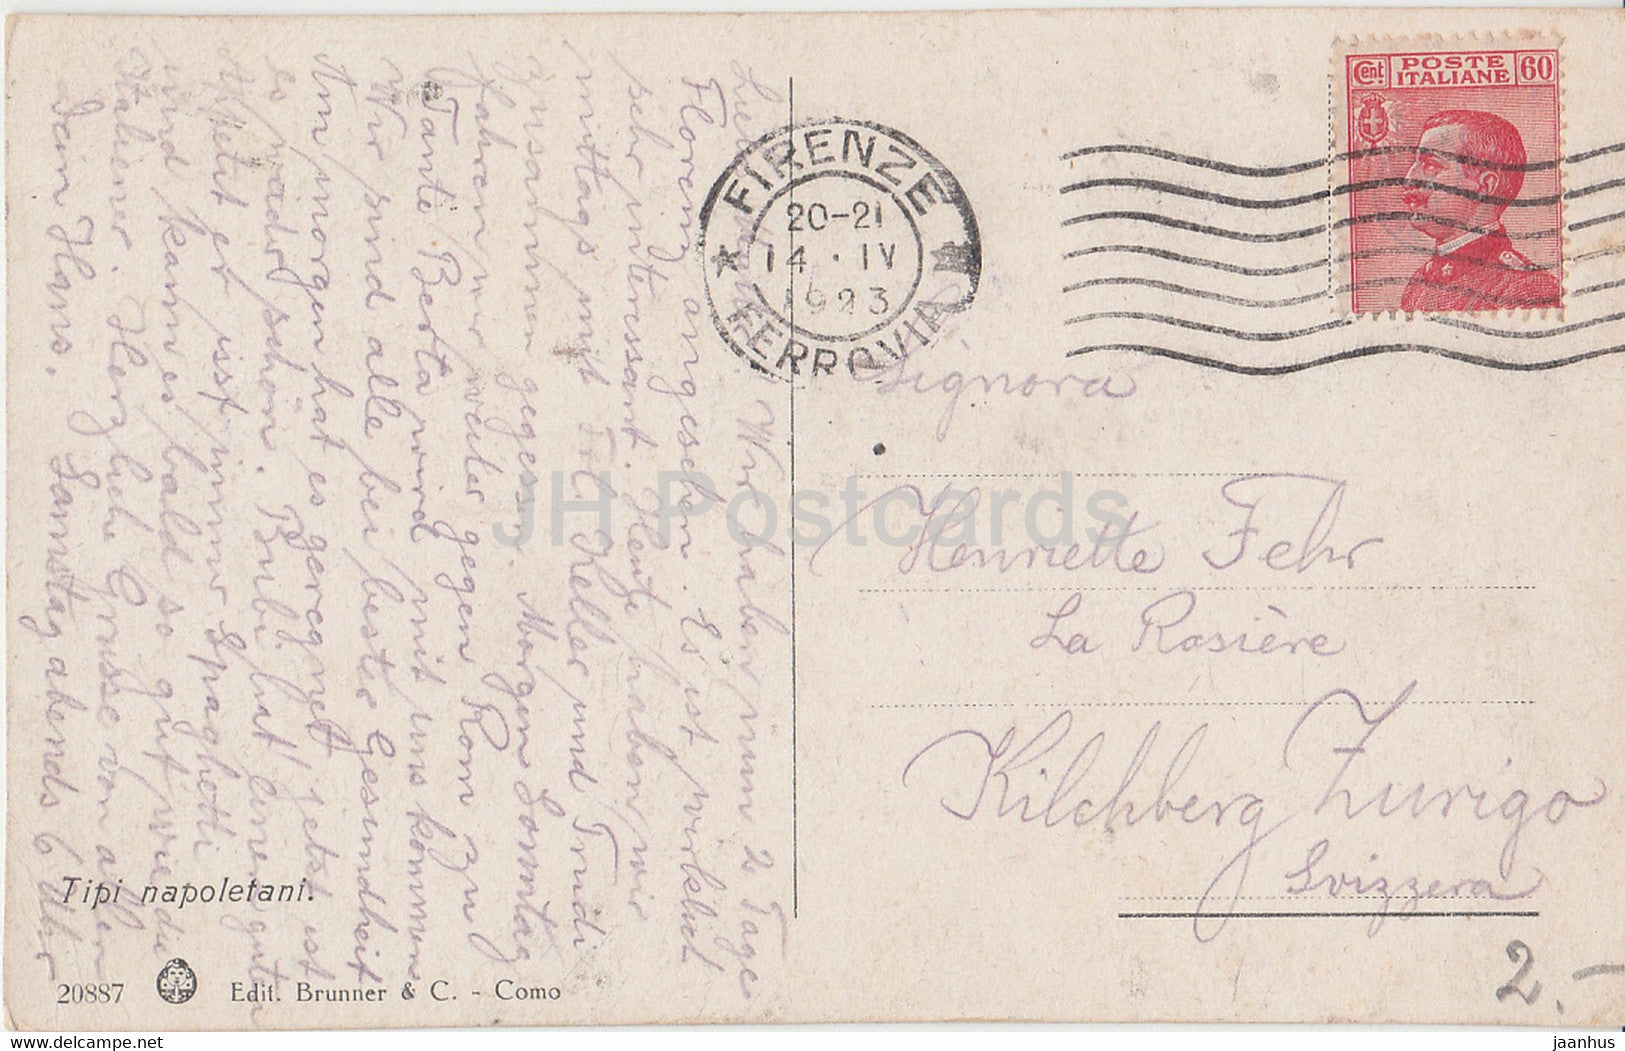 Wir haben nun 2 Tage
Florenz angesehen. Es ist wirklich
sehr interessant. Heute haben wir
mittags mit Keller und Trudi
zusammen gegessen. Morgen Sonntag
fahren wir weiter gegen Rom zu
Tante Berta wird mit uns kommen
Wir sind alle bei bester Gesundheit
Am morgen hat es geregnet, jetzt ist
es wieder schön. Bubi hat einen guten
Appetit er isst immer Spaghetti
und kann es bald so gut wie die
Italiener. Herzliche Grüsse von allen
Dein Hans. Samstag abends 6 Uhr
Tipi napoletani.
20887 Edit. Brunner & C. - Como
FIRENZE
20-21
14 · IV
1923
FERROVIA
Cent. POSTE ITALIANE 60
Signora
Henriette Fehr
La Rosière
Kilchberg Zurigo
Svizzera
2.-
JH Postcards
www.delcampe.net
jaanhus